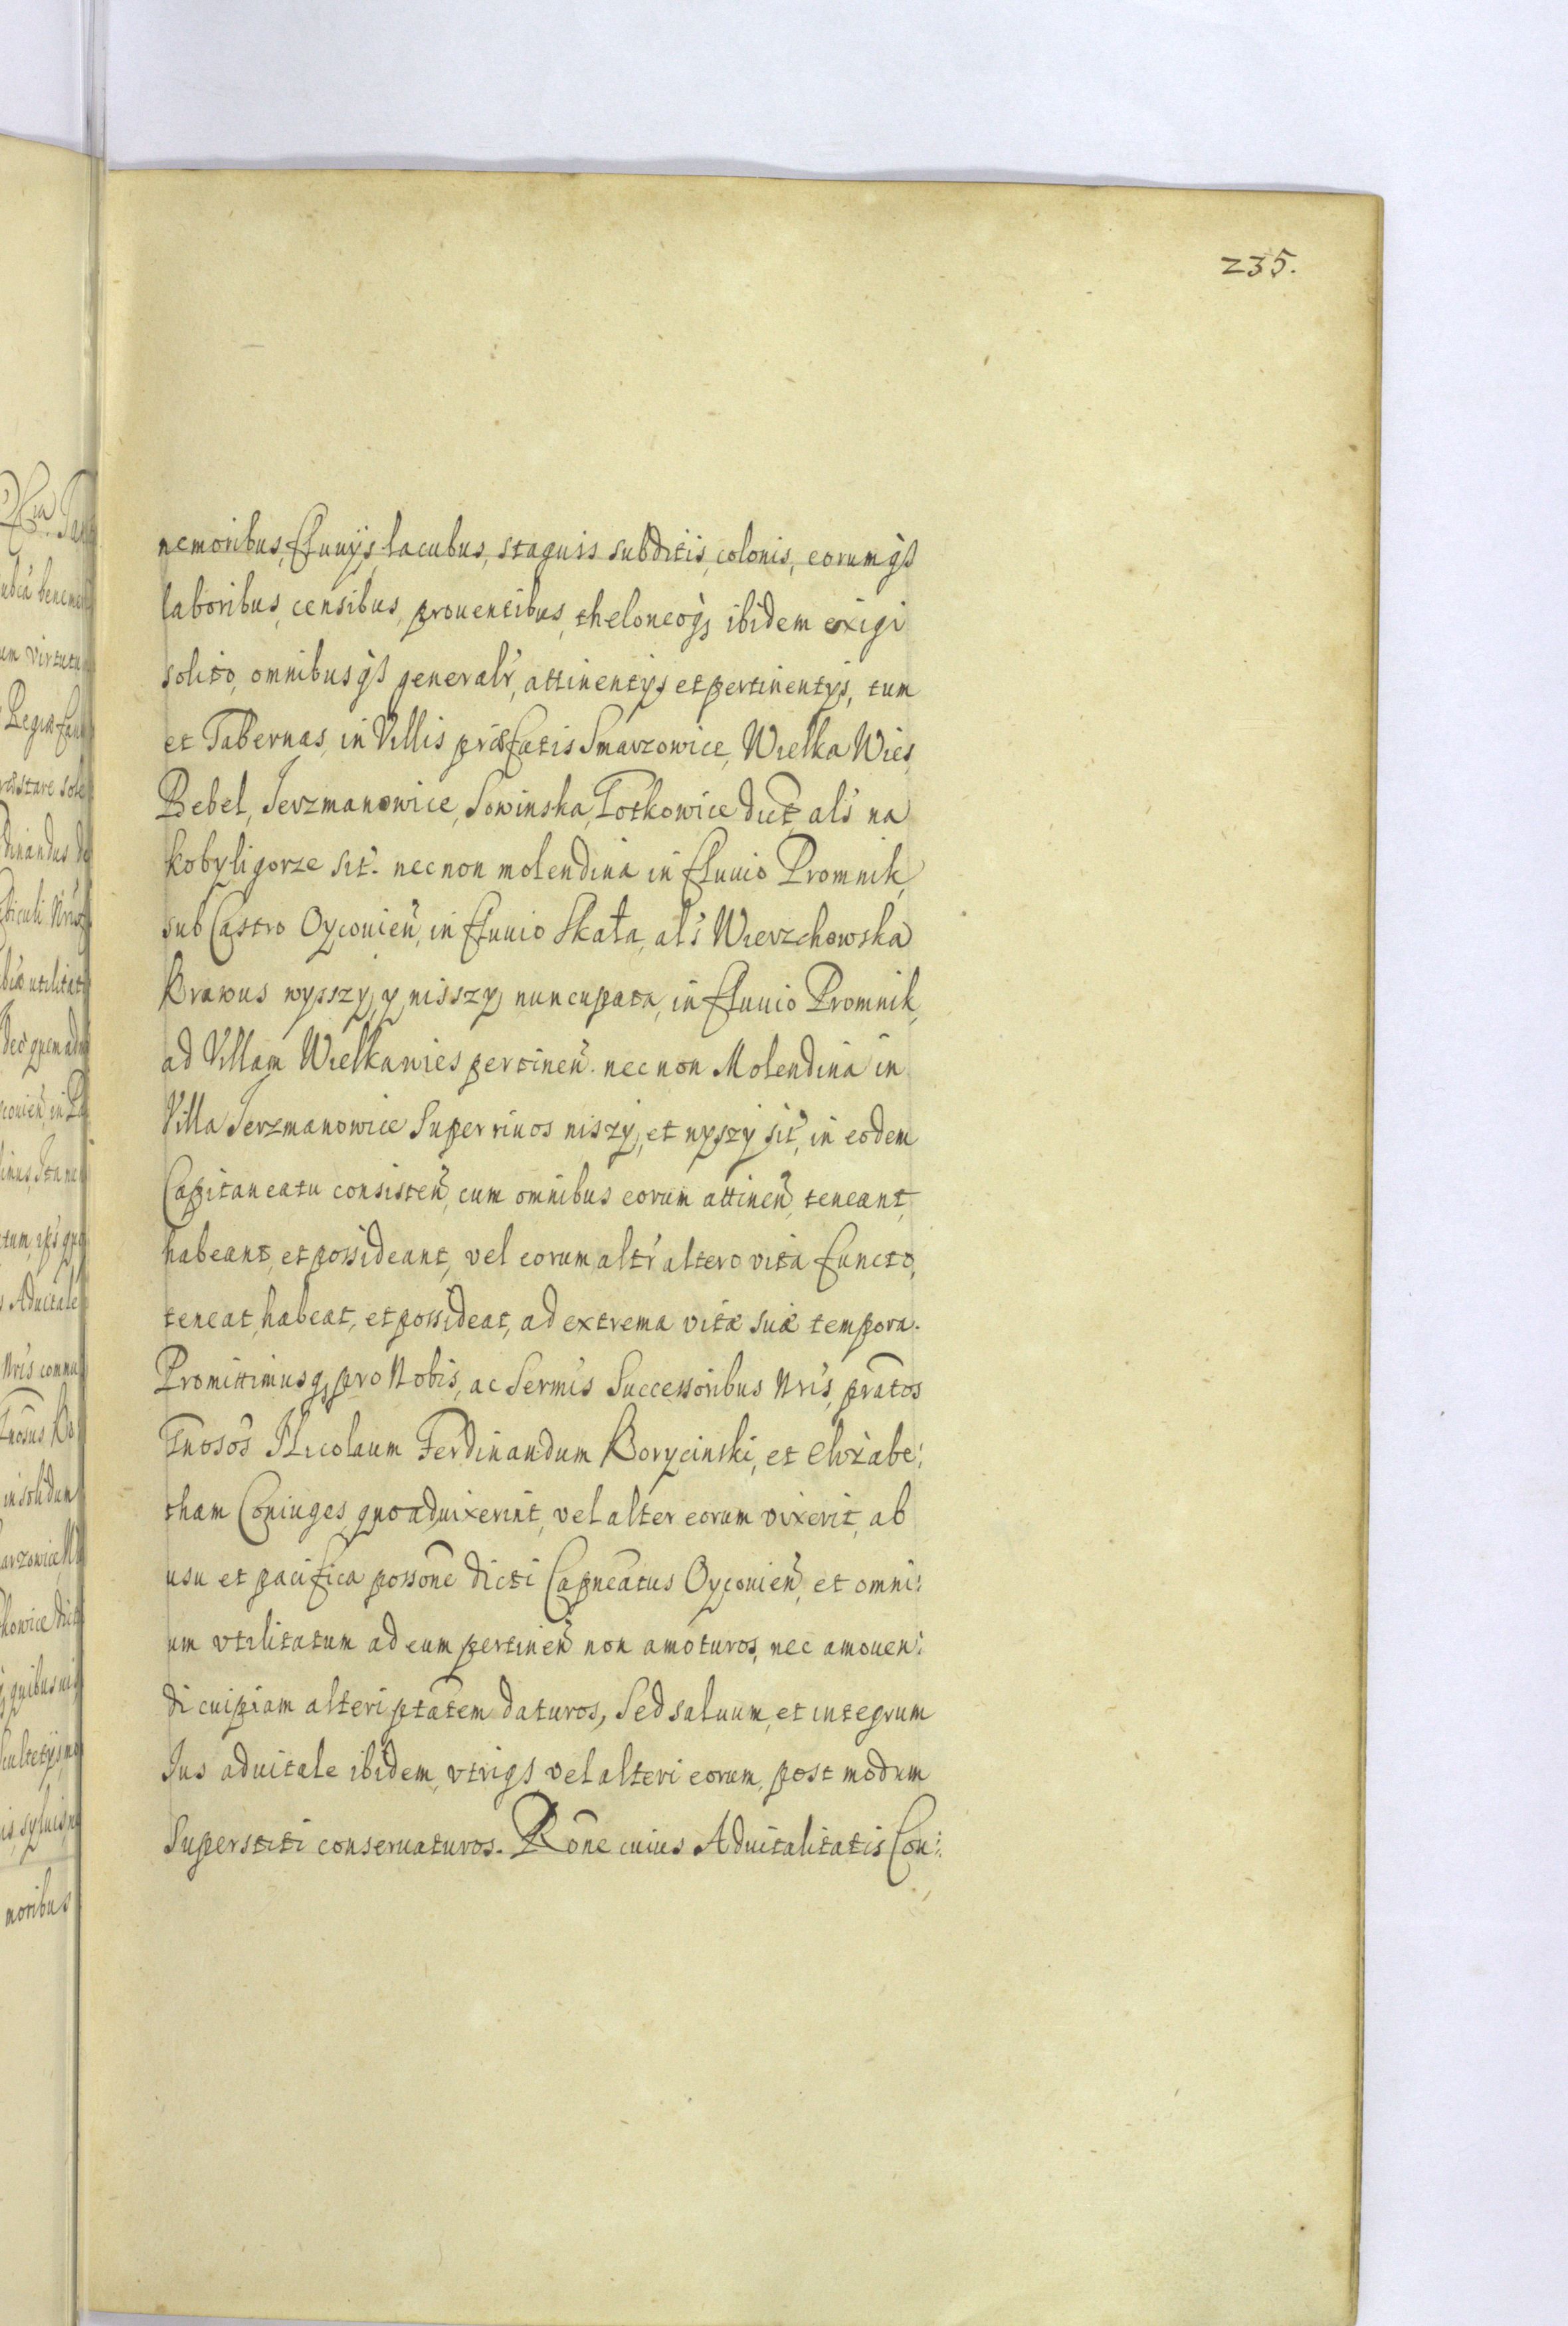 235.
nemoribus, fluuijs, lacubus, stagnis subditis, colonis, eorumqꝫ
laboribus, censibus, prouentibus, theloneoqꝫ ibidem exigi
solito, omnibusqꝫ generalr̃, attinentijs et pertinentijs, tum
et Tabernas, in Villis præfatis Smarzowice, Wielka Wies,
Bebel, Jerzmanowice, Sowinska, Totkowice dict, als na
kobyligorze sit. nec non molendina in fluuio Promnik,
sub Castro Oyconien̄, in fluuio Skała, als Wierzchowska
Brawus wysszy, y nisszy nuncupata, in fluuio Promnik,
ad Villam Wielkawies pertinen̄. nec non Molendina in
Villa Jerzmanowice Super riuos niszy, et wyszy sit, in eodem
Capitaneatu consisten̄, cum omnibus eorum attinen̄, teneant,
habeant, et possideant, vel eorum altr̃ altero vita functo,
teneat, habeat, et possideat, ad extrema vitæ suæ tempora.
Promittimusqꝫ pro Nobis, ac Sermis Successoribus Nris, pratos
Gnosos Nicolaum Ferdinandum Korycinski, et Elizabe:
tham Coniuges, quoaduixerint, vel alter eorum vixerit, ab
usu et pacifica possone dicti Capneatus Oyconien̄, et omni:
um vtilitatum ad eum pertinen̄ non amoturos, nec amouen:
di cuipiam alteri ptatem daturos, Sed saluum, et integrum
Jus aduitale ibidem, vtriqꝫ vel alteri eorum, post modum
Superstiti conseruaturos. Rone cuius Aduitalitatis Con: